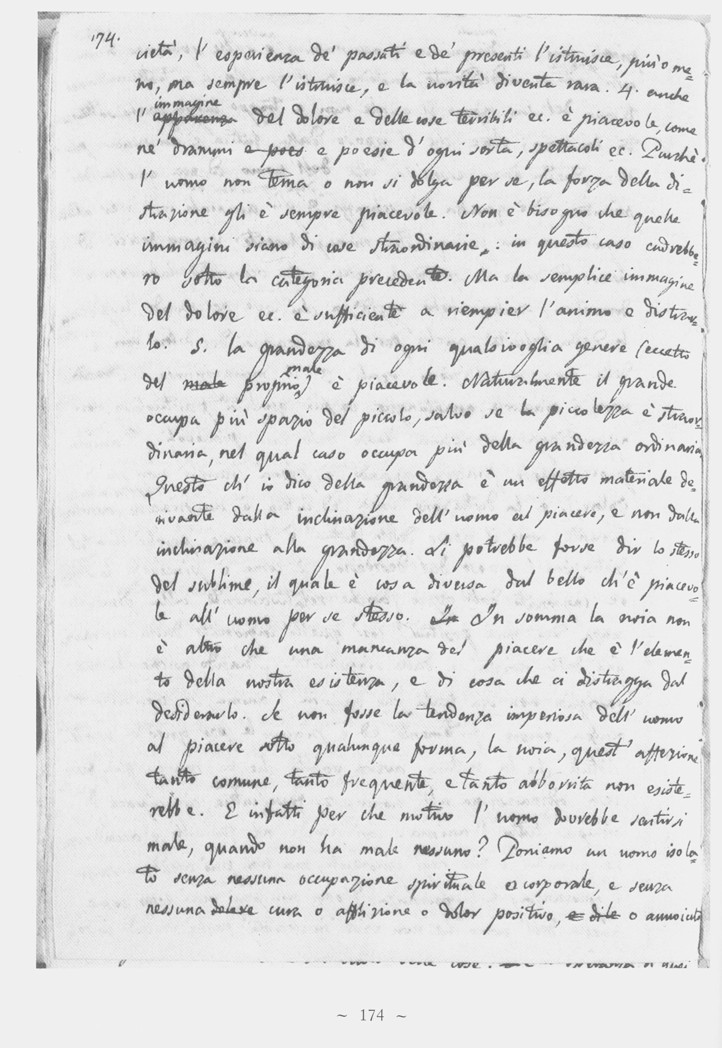 174.
cietà, l' esperienza de' passati e de' presenti l'istruisce, più o me=
no, ma sempre l'istruisce, e la novità diventa rara. 4. anche
immagine
l' apparenza del dolore e delle cose terribili ec. è piacevole, come
ne' drammi e poes e poesie d' ogni sorta, spettacoli ec. Purchè
l' uomo non tema o non si dolga per se, la forza della di=
strazione gli è sempre piacevole. Non è bisogno che quelle
immagini siano di cose straordinarie: in questo caso cadrebbe=
ro sotto la categoria precedente. Ma la semplice immagine
del dolore ec. è sufficiente a riempier l'animo e distrar=
lo. 5. la grandezza di ogni qualsivoglia genere (eccetto
male
del male proprio) è piacevole. Naturalmente il grande
occupa più spazio del piccolo, salvo se la piccolezza è straor=
dinaria, nel qual caso occupa più della grandezza ordinaria.
Questo ch' io dico della grandezza è un effetto materiale de=
rivante dalla inclinazione dell' uomo al piacere, e non dalla
inclinazione alla grandezza. Si potrebbe forse dir lo stesso
del sublime, il quale è cosa diversa dal bello ch'è piacevo=
le all' uomo per se stesso. In In somma la noia non
è altro che una mancanza del piacere che è l'elemen=
to della nostra esistenza, e di cosa che ci distragga dal
desiderarlo. Se non fosse la tendenza imperiosa dell' uomo
al piacere sotto qualunque forma, la noia, quest' affezione
tanto comune, tanto frequente, e tanto abborrita non esiste=
rebbe. E infatti per che motivo l' uomo dovrebbe sentirsi
male, quando non ha male nessuno? Poniamo un uomo isola=
to senza nessuna occupazione spirituale o corporale, e senza
nessuna cura o afflizione o dolor positivo, o annoiato
~ 174 ~